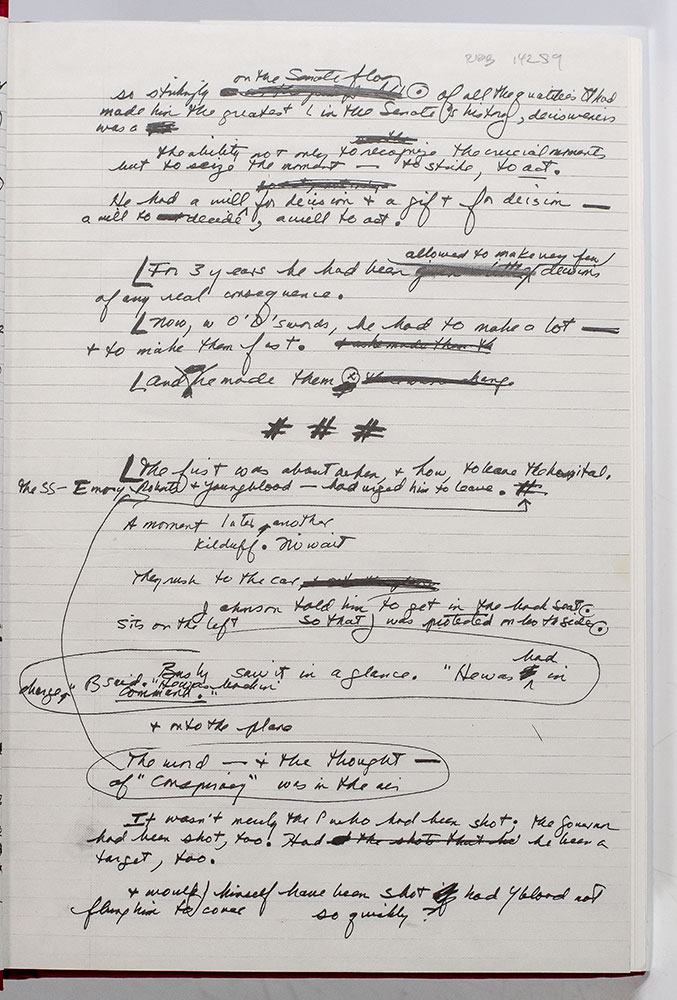 on the Senate floor
so strikingly of all the qualities that had
made him the greatest L in the Senate's history, decisiveness
was a
the ability not only to recognize the crucial moments
but to seize the moment — to strike, to act.
He had a will for decision & a gift for decision —
a will to decide, a will to act.
allowed to make very few
For 3 years he had been decisions
of any real consequence.
Now, in O'D's words, he had to make a lot —
& to make them fast.
And he made them
# # #
The first was about when, & how, to leave the hospital.
The SS – Emory Roberts & Youngblood — had urged him to leave. #
A moment later, another
Kilduff. No wait
They rush to the car
Johnson told him to get in the back seat
Sits on the left so that J was protected on both sides
had
Busby saw it in a glance. "He was in
charge," B said. "He was
command."
& onto the plane
The word — & the thought —
of "conspiracy" was in the air
It wasn't merely the P who had been shot; the Governor
had been shot, too. Had he been a
target, too.
& would J himself have been shot had Yblood not
flung him to cover so quickly ?